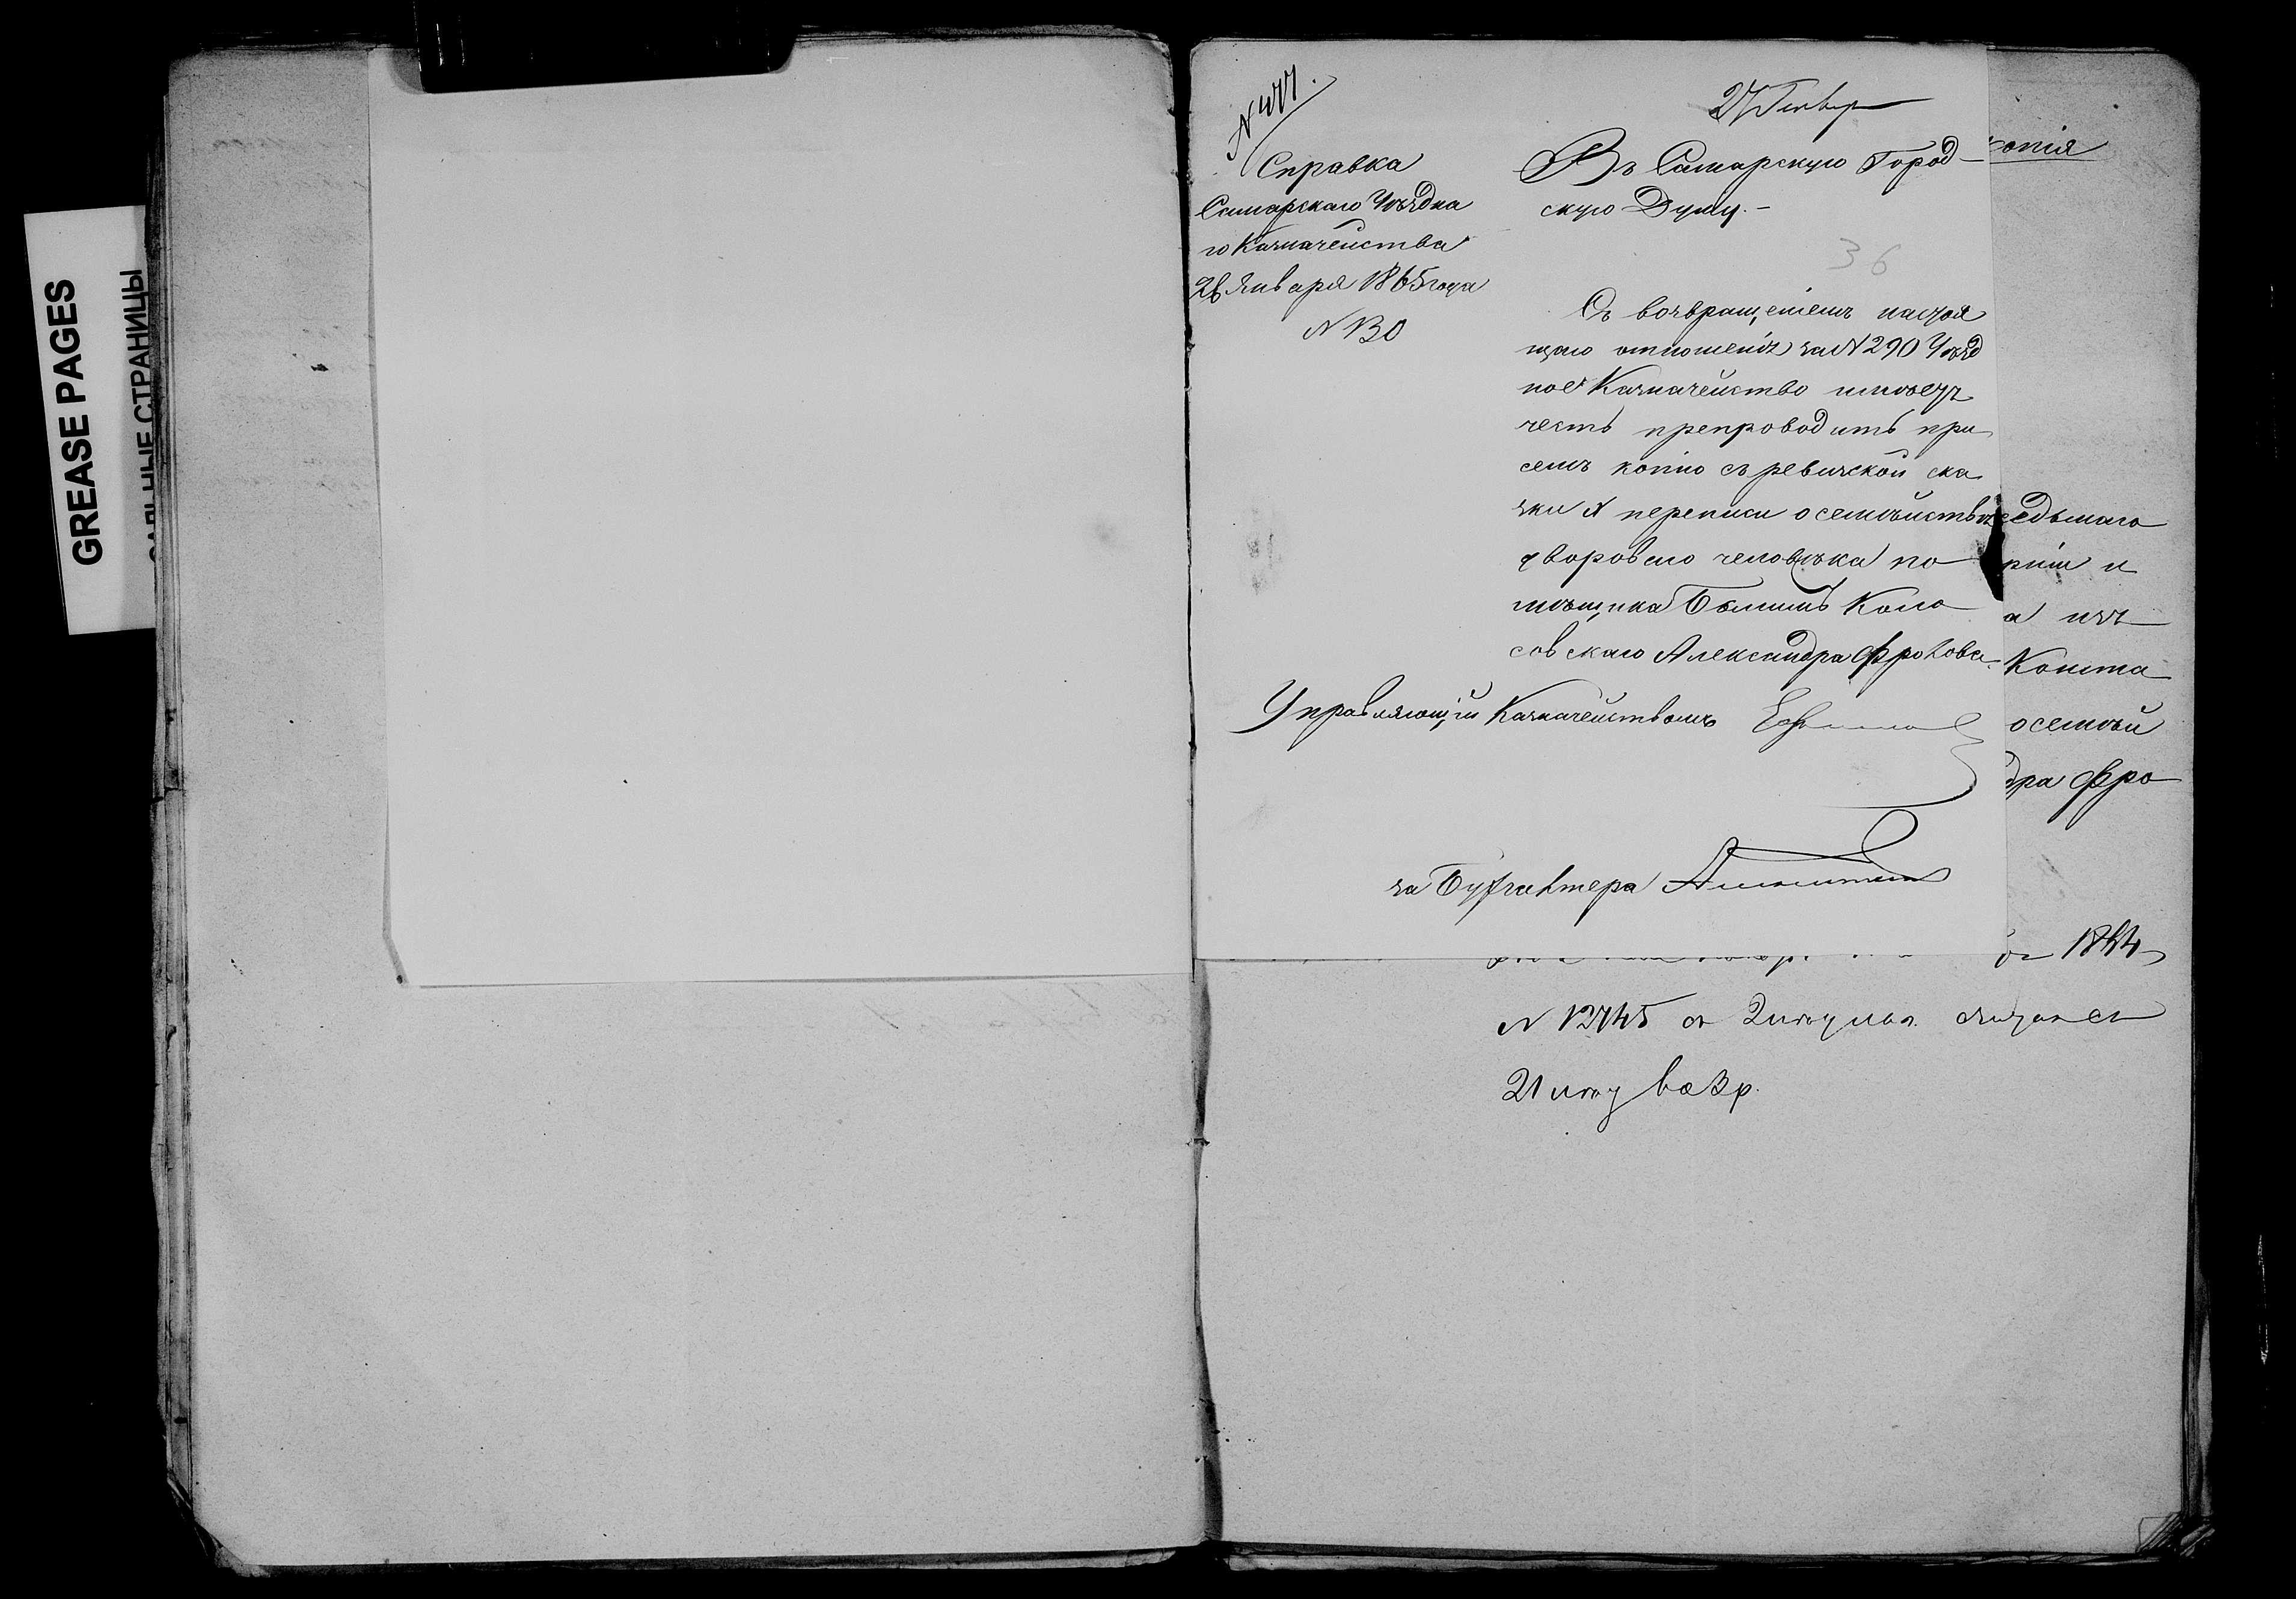 GREASE PAGES
САЛЬНЫЕ СТРАНИЦЫ
27 Генвар
Справка
Самарскаго Уѣздна
го Казначейства
26 Января 1865 года
N 130
Въ Самарскую Город
скую Думу. –
36
Съ возвращеніемъ настоя
щаго отношенія за N 290 Уѣзд
ное Казначейство имѣетъ
честь препроводить при
семъ копію съ ревизской ска
зки X переписи о семѣйствѣ
двороваго человѣка по
мѣщика Коло
совскаго Александра Фролова
Управляющій Казначействомъ
за Бухгалтера
копія
седьмаго
ріи и
а изъ
Конста
о семѣй
дра Фро
N 12745
21 году возр.